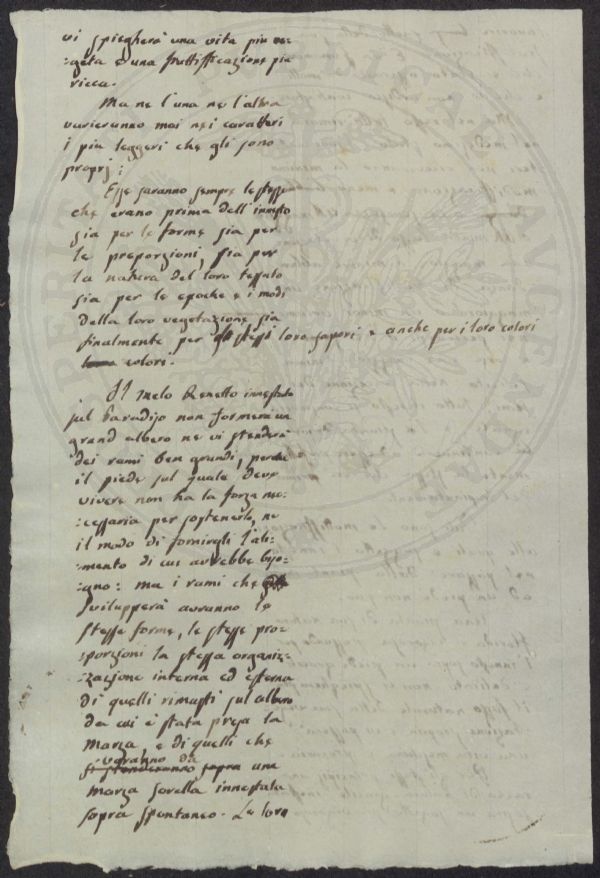 vi spiegherà una vita più ve-
-geta e una fruttifficazione più
ricca.
Ma ne l'una ne l'altra
varieranno mai nei caratteri
i più leggeri che gli sono
proprj:
Esse saranno sempre le stesse
che erano prima dell'innesto
sia per le forme sia per
le preporzioni, sia per
la natura del loro tessuto
sia per le epoche e i modi
della loro vegetazione sia
finalmente per gli stessi loro sapori e anche per i loro colori
colori.
Il Melo Renetto innestato
sul Paradiso non formerà un
grand albero ne vi stenderà
dei rami ben grandi, perche
il piede sul quale deve
vivere non ha la forza ne-
-cessaria per sostenerlo, ne
il modo di fornirgli l'ali-
-mento di cui avrebbe biso-
-gno: ma i rami che
svilupperà avranno le
stesse forme, le stesse pro-
-porzioni la stessa organiz-
-zazione interna ed esterna
di quelli rimasti sul albero
da cui è stata presa la
Marza, e di quelli che
verranno da
si stenderanno sopra una
marza sorella innestata
sopra spontaneo. Le loro